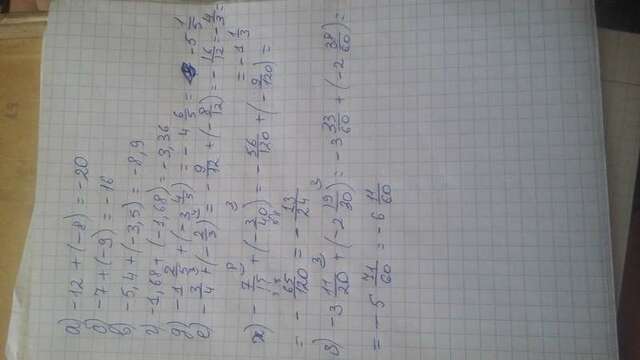 а) -12 + (-8) = -20
б) -7 + (-9) = -16
в) -5,4 + (-3,5) = -8,9
г) -1,68 + (-1,68) = -3,36
д) -1 2/5 + (-3 4/5) = -4 6/5 = -5 1/5
е) -3/4 + (-2/3) = -9/12 + (-8/12) = -16/12 = -4/3 =
= -1 1/3
ж) -7/15 + (-3/40) = -56/120 + (-9/120) =
= -65/120 = -13/24
з) -3 11/20 + (-2 19/30) = -3 33/60 + (-2 38/60) =
= -5 71/60 = -6 11/60